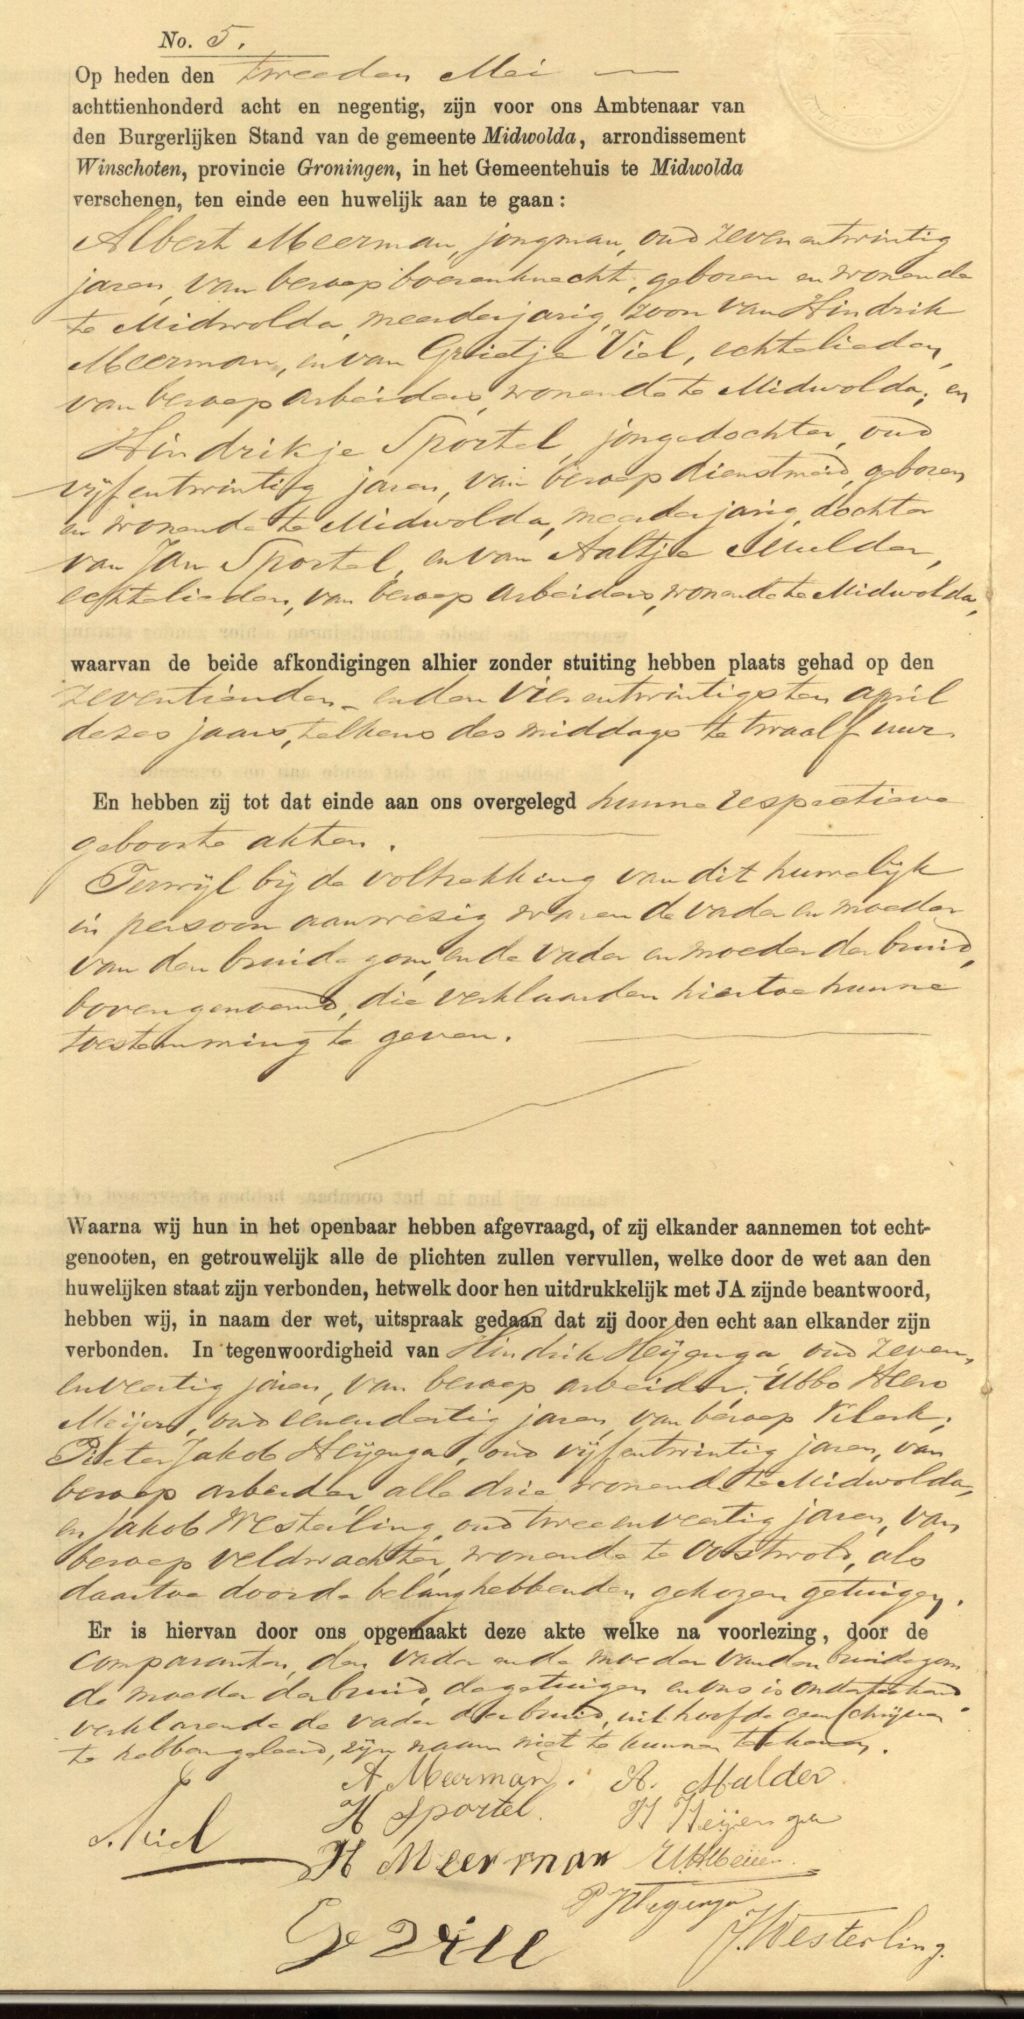 No. 5.
Op heden den tweeden Mei
achttienhonderd acht en negentig, zijn voor ons Ambtenaar van
den Burgerlijken Stand van de gemeente Midwolda, arrondissement
Winschoten, provincie Groningen, in het Gemeentehuis te Midwolda
verschenen, ten einde een huwelijk aan te gaan:
Albert Meerman, jongman, oud zevenentwintig
jaren, van beroep boerenknecht, geboren en wonende
te Midwolda, meerderjarig, zoon van Hindrik
Meerman, en van Grietje Viel, echtelieden,
van beroep arbeiders, wonende te Midwolda; en
Hindrikje Sportel, jongedochter, oud
vijfentwintig jaren, van beroep dienstmeid, geboren
en wonende te Midwolda, meerderjarig, dochter
van Jan Sportel, en van Aaltje Mulder,
echtelieden, van beroep arbeiders, wonende te Midwolda,
waarvan de beide afkondigingen alhier zonder stuiting hebben plaats gehad op den
zeventienden en den vierentwintigsten april
dezes jaars, telkens des middags te twaalf uur.
En hebben zij tot dat einde aan ons overgelegd hunne respectieve
geboorte akten.
Terwijl bij de voltrekking van dit huwelijk
in persoon aanwezig waren de vader en moeder
van den bruidegom, en de vader en moeder der bruid,
bovengenoemd, die verklaarden hiertoe hunne
toestemming te geven.
Waarna wij hun in het openbaar hebben afgevraagd, of zij elkander aannemen tot echt-
genooten, en getrouwelijk alle de plichten zullen vervullen, welke door de wet aan den
huwelijken staat zijn verbonden, hetwelk door hen uitdrukkelijk met JA zijnde beantwoord,
hebben wij, in naam der wet, uitspraak gedaan dat zij door den echt aan elkander zijn
verbonden. In tegenwoordigheid van Hindrik Heijenga, oud zeven
enveertig jaren, van beroep arbeider; Ubbo Heero
Meijer, oud eenendertig jaren, van beroep klerk;
Pieter Jakob Heijenga, oud vijfentwintig jaren, van
beroep arbeider, alle drie wonende te Midwolda,
en Jakob Westerling, oud tweeenveertig jaren, van
beroep veldwachter, wonende te Oostwold, als
daartoe door de belanghebbenden gekozen getuigen.
Er is hiervan door ons opgemaakt deze akte welke na voorlezing, door de
comparanten, den vader en de moeder van den bruidegom
de moeder der bruid, de getuigen en ons is onderteekend
verklarende de vader der bruid, uit hoofde geen schrijven
te hebben geleerd, zijn naam niet te kunnen teekenen.
A Meerman. A. Mulder
H Sportel. H Heijenga
H Meerman
P J Heijenga
J. Westerling.